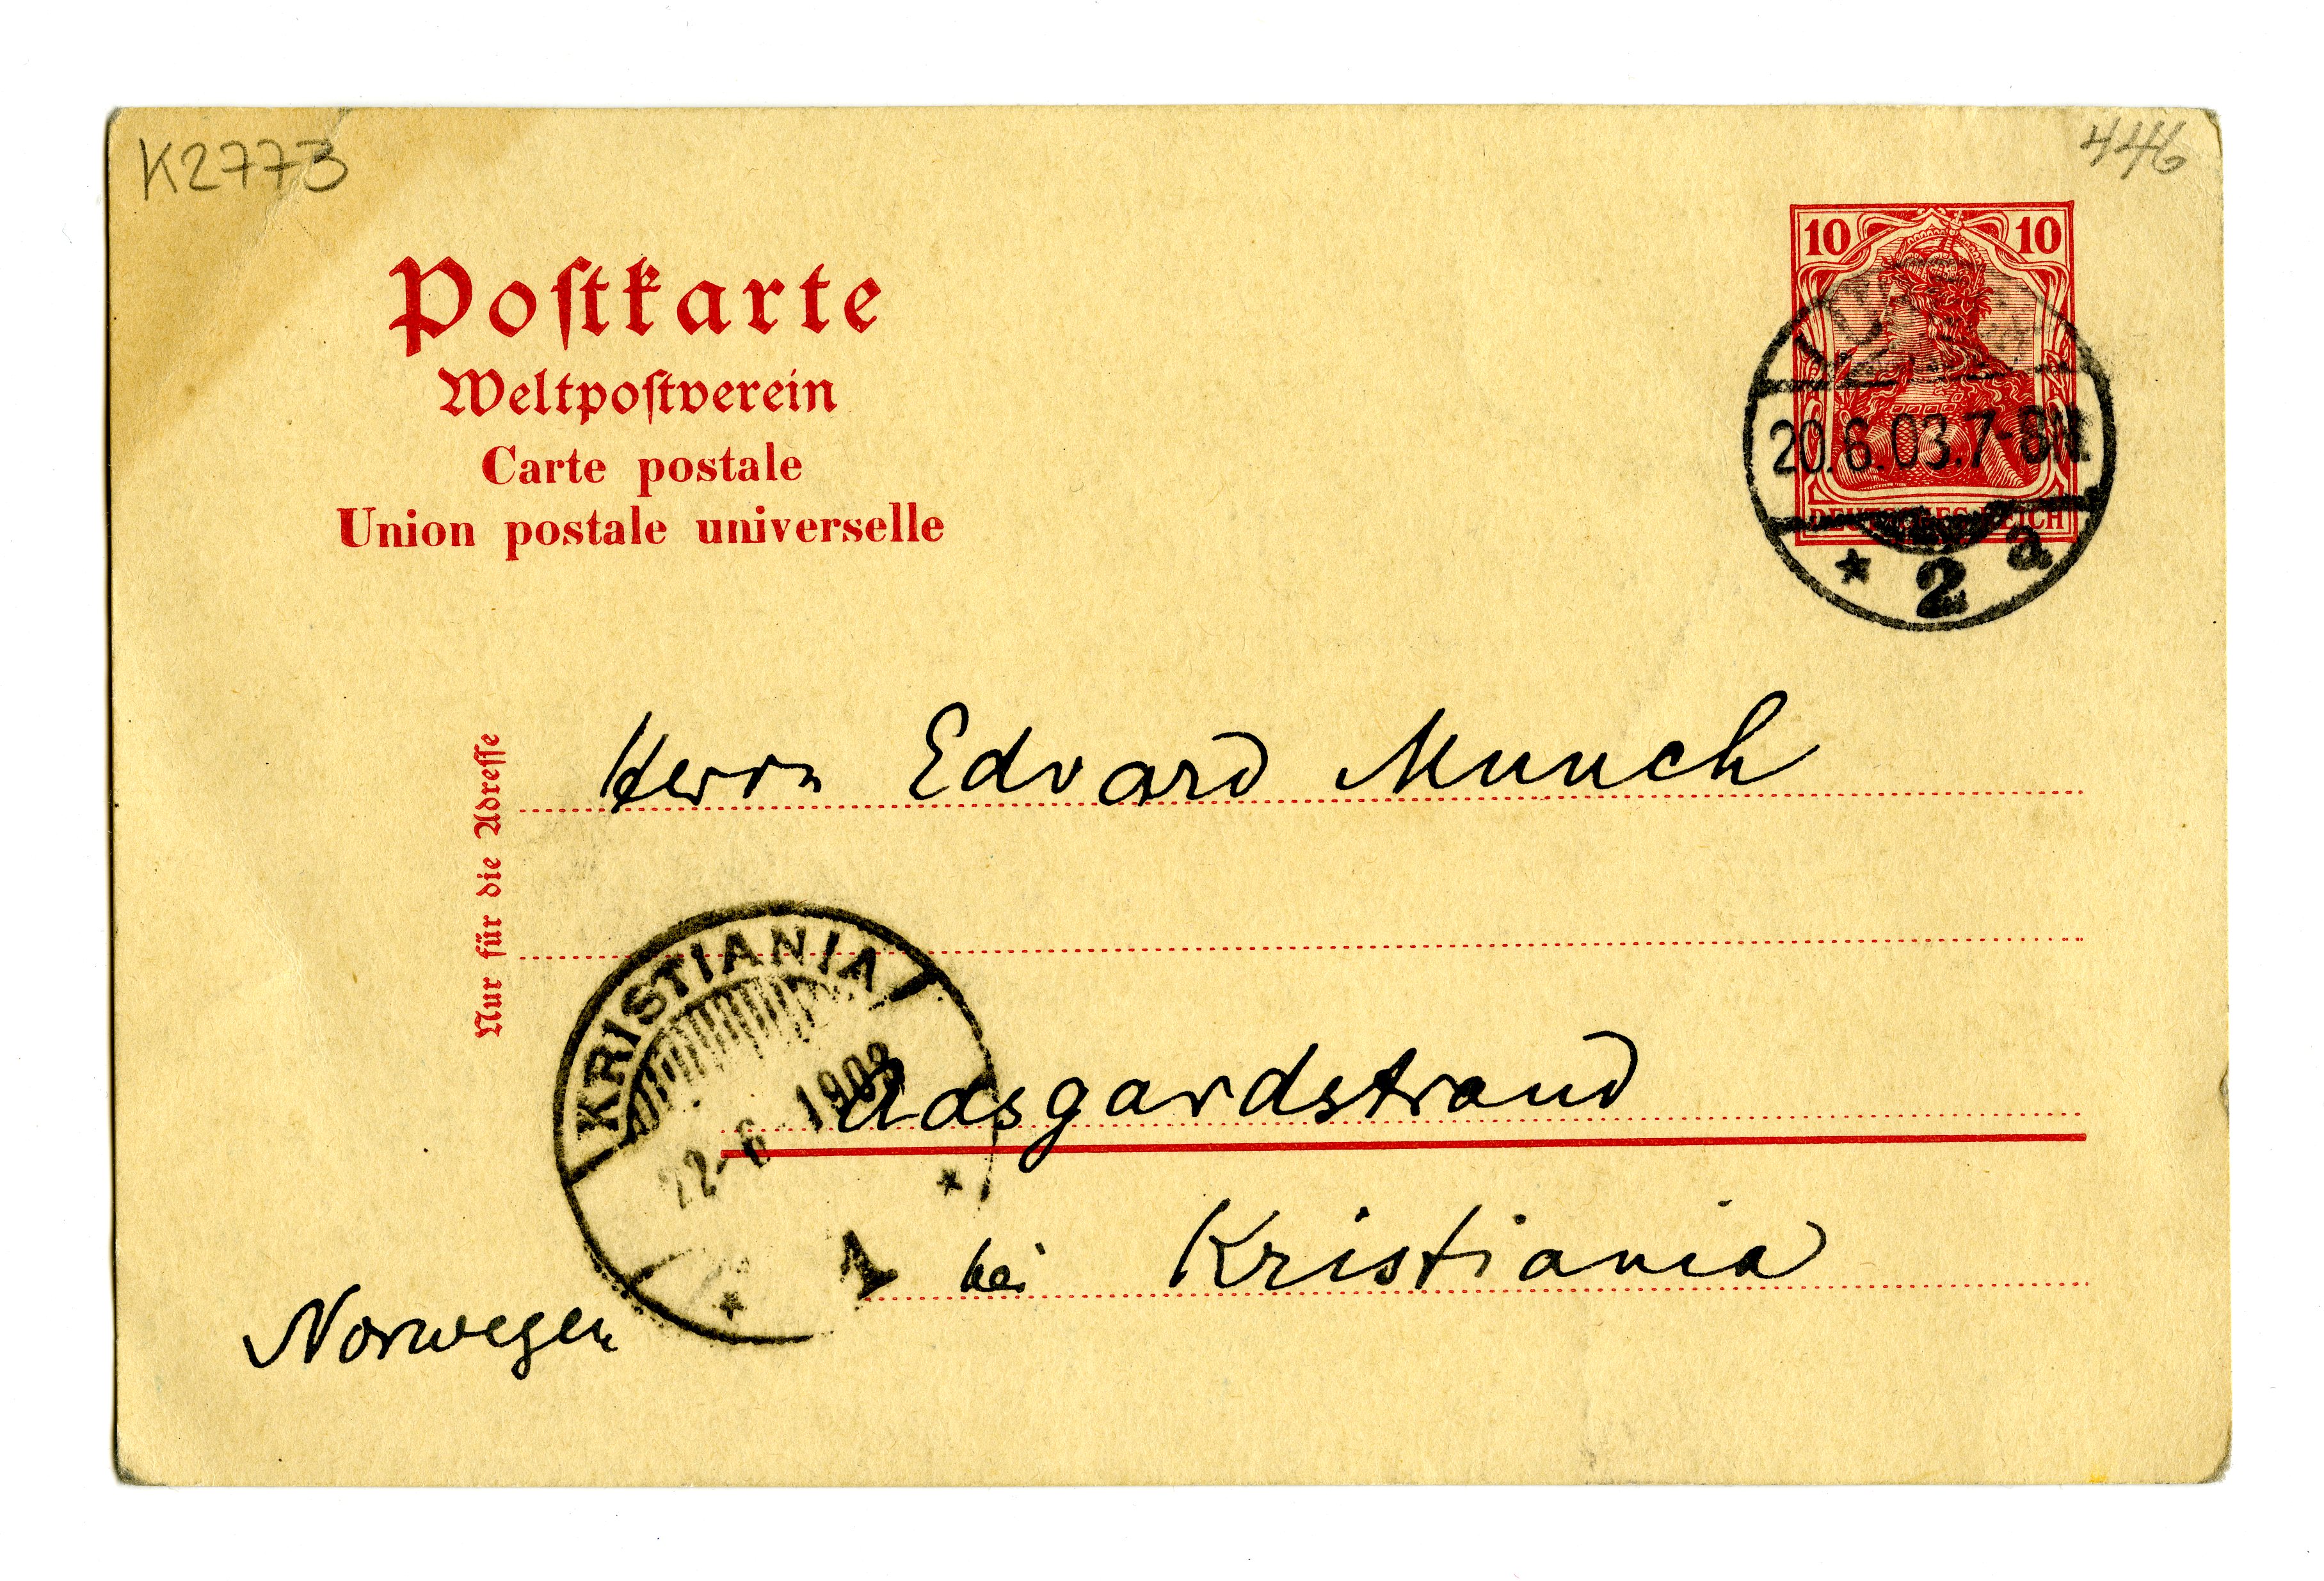 K2773
446
Postkarte
Weltpostverein
Carte postale
Union postale universelle
10 10
DEUTSCHES REICH
20.6.03.7-8N.
* 2 a
Nur für die Adresse
Herrn Edvard Munch
KRISTIANIA
22-6 1903
* 1 *
Adsgardstrand
bei Kristiania
Norwegen